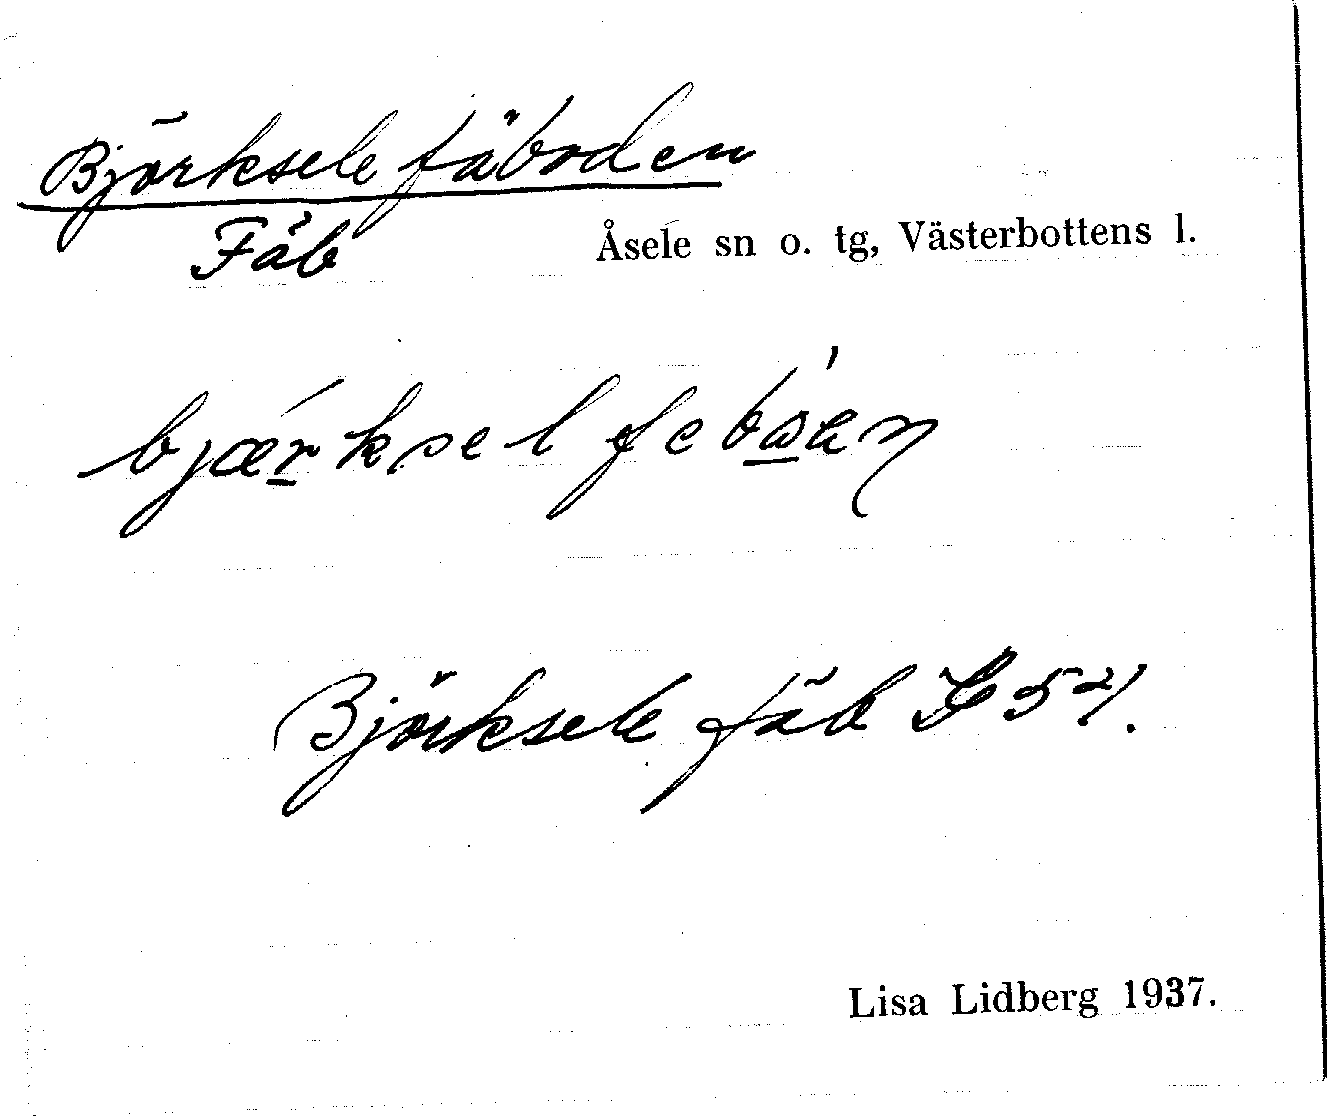 Björksele fäboden
Fäb Åsele sn o. tg, Västerbottens l.
Björksele fäb
Lisa Lidberg 1937.